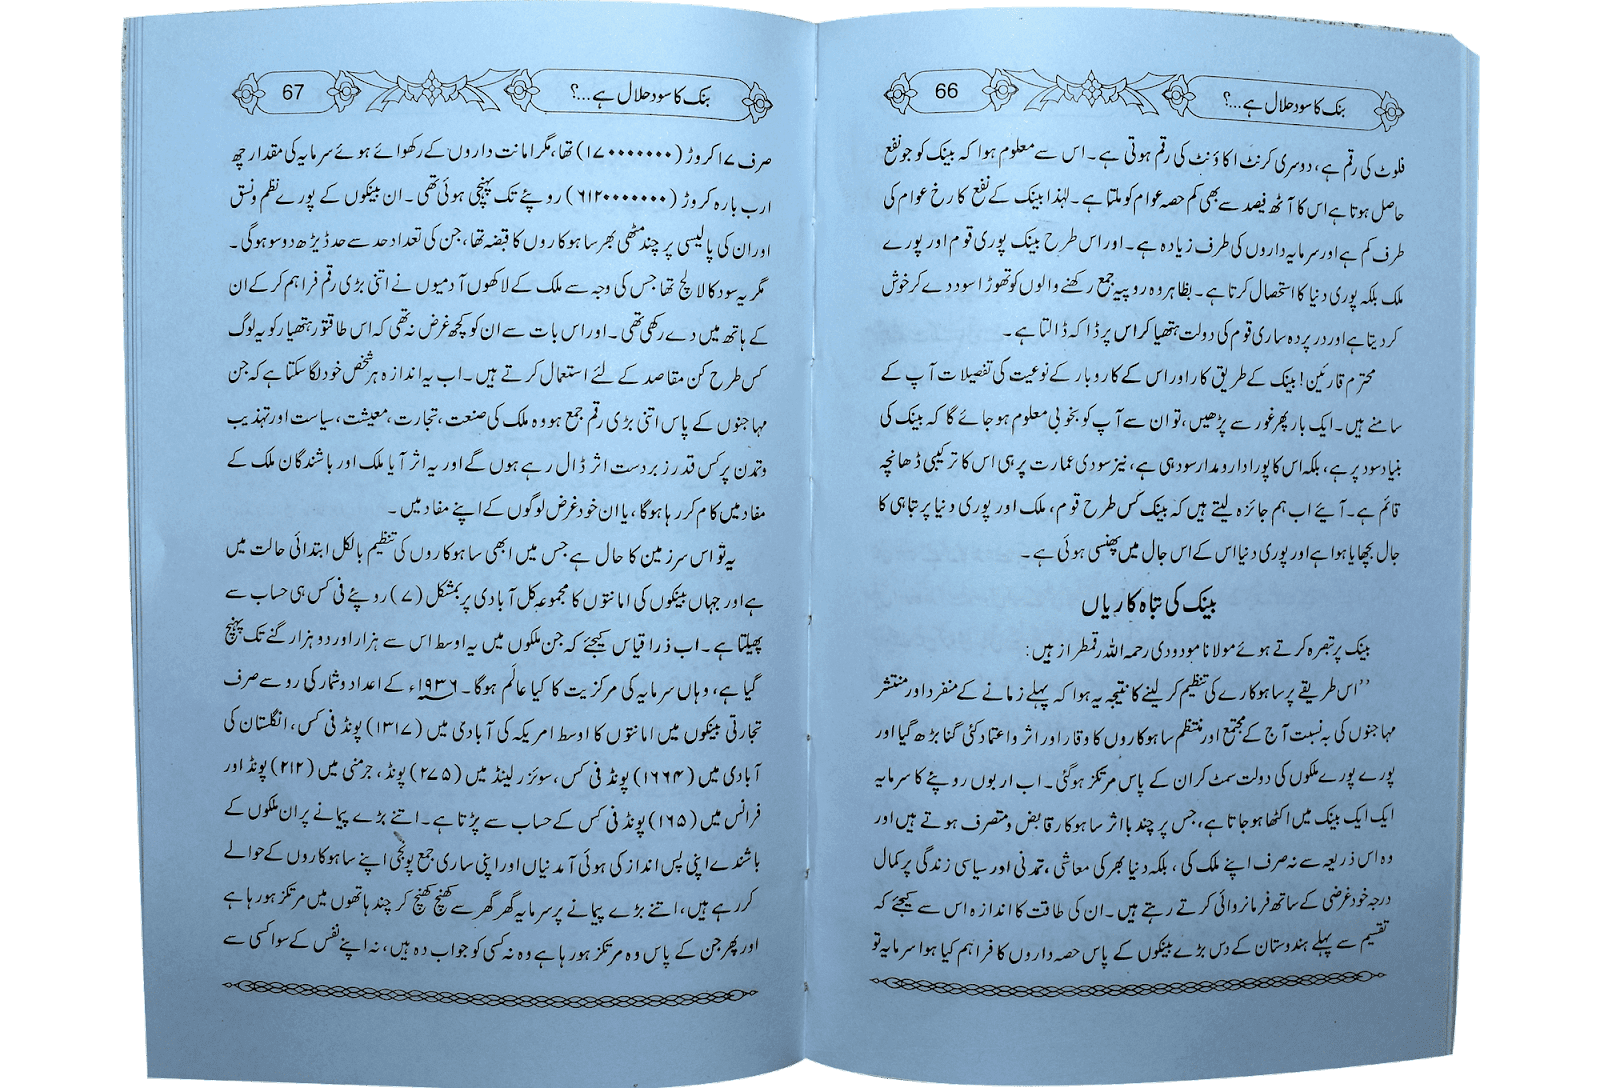 بنک کا سود حلال ہے...؟ 66
فلوٹ کی رقم ہے، دوسری کرنٹ اکاؤنٹ کی رقم ہوتی ہے۔ اس سے معلوم ہوا کہ بینک کو جو نفع
حاصل ہوتا ہے اس کا آٹھ فیصد سے بھی کم حصہ عوام کو ملتا ہے۔ لہٰذا بینک کے نفع کا رخ عوام کی
طرف کم ہے اور سرمایہ داروں کی طرف زیادہ ہے۔ اور اس طرح بینک پوری قوم اور پورے
ملک بلکہ پوری دنیا کا استحصال کرتا ہے۔ بظاہر وہ روپیہ جمع رکھنے والوں کو تھوڑا سود دے کر خوش
کر دیتا ہے اور در پردہ ساری قوم کی دولت ہتھیا کر اس پر ڈاکہ ڈالتا ہے۔
محترم قارئین! بینک کے طریق کار اور اس کے کاروبار کے نوعیت کی تفصیلات آپ کے
سامنے ہیں۔ ایک بار پھر غور سے پڑھیں، تو ان سے آپ کو بخوبی معلوم ہو جائے گا کہ بینک کی
بنیاد سود پر ہے، بلکہ اس کا پورا دارومدار سود ہی ہے، نیز سودی عمارت پر ہی اس کا ترکیبی ڈھانچہ
قائم ہے۔ آیئے اب ہم جائزہ لیتے ہیں کہ بینک کس طرح قوم، ملک اور پوری دنیا پر تباہی کا
جال بچھایا ہوا ہے اور پوری دنیا اس کے اس جال میں پھنسی ہوئی ہے۔
بینک کی تباہ کاریاں
بینک پر تبصرہ کرتے ہوئے مولانا مودودی رحمہ اللہ رقمطراز ہیں:
’’اس طریقے پر ساہوکارے کی تنظیم کر لینے کا نتیجہ یہ ہوا کہ پہلے زمانے کے منفرد اور منتشر
مہاجنوں کی بہ نسبت آج کے مجتمع اور منتظم ساہوکاروں کا وقار اور اثر و اعتماد کئی گنا بڑھ گیا اور
پورے پورے ملکوں کی دولت سمٹ کر ان کے پاس مرتکز ہوگئی۔ اب اربوں روپئے کا سرمایہ
ایک ایک بینک میں اکٹھا ہو جاتا ہے، جس پر چند با اثر ساہوکار قابض و متصرف ہوتے ہیں اور
وہ اس ذریعہ سے نہ صرف اپنے ملک کی، بلکہ دنیا بھر کی معاشی، تمدنی اور سیاسی زندگی پر کمال
درجہ خود غرضی کے ساتھ فرمانروائی کرتے رہتے ہیں۔ ان کی طاقت کا اندازہ اس سے کیجئے کہ
تقسیم سے پہلے ہندوستان کے دس بڑے بینکوں کے پاس حصہ داروں کا فراہم کیا ہوا سرمایہ تو
بنک کا سود حلال ہے...؟ 67
صرف ۱۷ کروڑ (۱۷۰۰۰۰۰۰۰) تھا، مگر امانت داروں کے رکھوائے ہوئے سرمایہ کی مقدار چھ
ارب بارہ کروڑ (۶۱۲۰۰۰۰۰۰۰) روپئے تک پہنچی ہوئی تھی۔ ان بینکوں کے پورے نظم و نسق
اور ان کی پالیسی پر چند مٹھی بھر ساہوکاروں کا قبضہ تھا، جن کی تعداد حد سے حد ڈیڑھ دو سو ہوگی۔
مگر یہ سود کا لالچ تھا جس کی وجہ سے ملک کے لاکھوں آدمیوں نے اتنی بڑی رقم فراہم کر کے ان
کے ہاتھ میں دے رکھی تھی۔ اور اس بات سے ان کو کچھ غرض نہ تھی کہ اس طاقتور ہتھیار کو یہ لوگ
کس طرح کن مقاصد کے لئے استعمال کرتے ہیں۔ اب یہ اندازہ ہر شخص خود لگا سکتا ہے کہ جن
مہاجنوں کے پاس اتنی بڑی رقم جمع ہو وہ ملک کی صنعت، تجارت، معیشت، سیاست اور تہذیب
وتمدن پر کس قدر زبردست اثر ڈال رہے ہوں گے اور یہ اثر آیا ملک اور باشندگان ملک کے
مفاد میں کام کر رہا ہوگا، یا ان خود غرض لوگوں کے اپنے مفاد میں۔
یہ تو اس سرزمین کا حال ہے جس میں ابھی ساہوکاروں کی تنظیم بالکل ابتدائی حالت میں
ہے اور جہاں بینکوں کی امانتوں کا مجموعہ کل آبادی پر بمشکل (۷) روپئے فی کس ہی حساب سے
پھیلتا ہے۔ اب ذرا قیاس کیجئے کہ جن ملکوں میں یہ اوسط اس سے ہزار اور دو ہزار گنے تک پہنچ
گیا ہے، وہاں سرمایہ کی مرکزیت کا کیا عالم ہوگا۔ ۱۹۳۶ء کے اعداد و شمار کی رو سے صرف
تجارتی بینکوں میں امانتوں کا اوسط امریکہ کی آبادی میں (۱۳۱۷) پونڈ فی کس، انگلستان کی
آبادی میں (۱۶۶۴) پونڈ فی کس، سوئزرلینڈ میں (۲۷۵) پونڈ، جرمنی میں (۲۱۲) پونڈ اور
فرانس میں (۱۶۵) پونڈ فی کس کے حساب سے پڑتا ہے۔ اتنے بڑے پیمانے پر ان ملکوں کے
باشندے اپنی پس انداز کی ہوئی آمدنیاں اور اپنی ساری جمع پونجی اپنے ساہوکاروں کے حوالے
کر رہے ہیں، اتنے بڑے پیمانے پر سرمایہ گھر گھر سے کھنچ کھنچ کر چند ہاتھوں میں مرتکز ہو رہا ہے
اور پھر جن کے پاس وہ مرتکز ہو رہا ہے وہ نہ کسی کو جواب دہ ہیں، نہ اپنے نفس کے سوا کسی سے